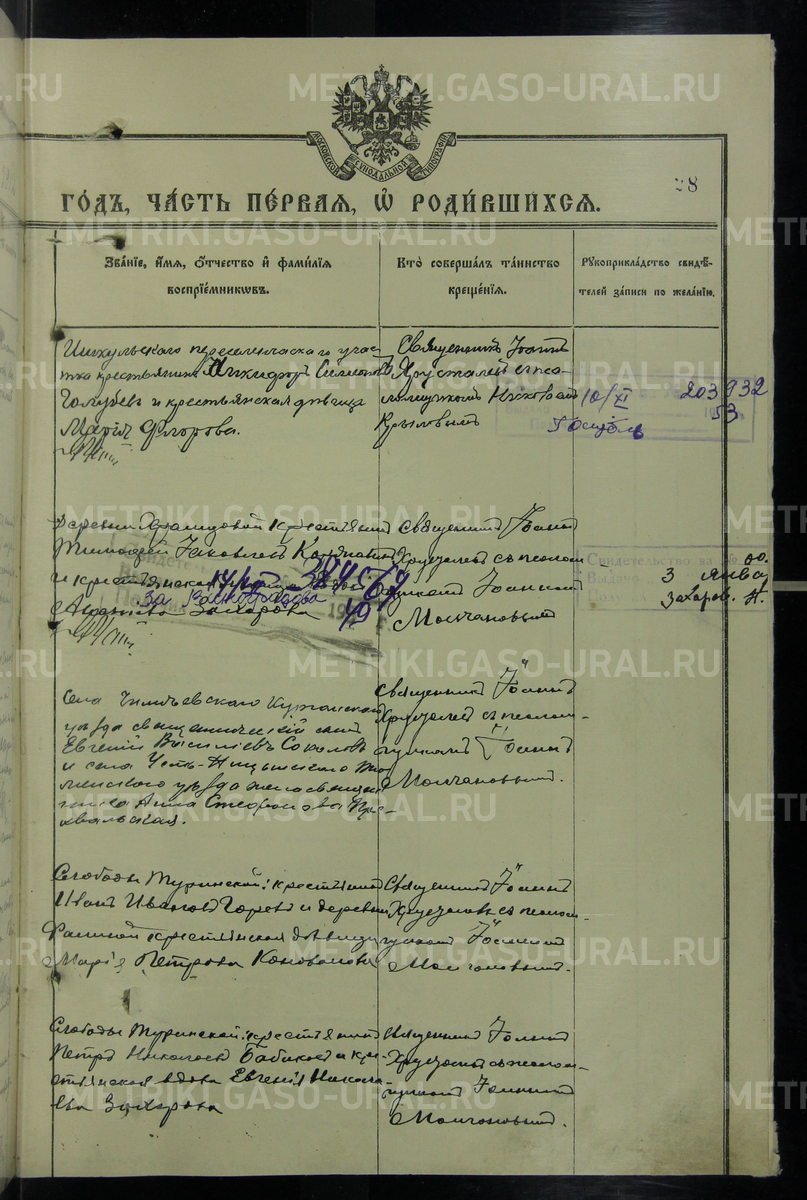 METRIKI.GASO-URAL.RU
МОСКОВСКОЙ СѴНОДАЛЬНОЙ ТИПОГРАФІИ
28
ГО́ДЪ, ЧА́СТЬ ПЕ́РВАЯ, Ѡ҆ РОДИ́ВШИХСѦ.
Зва́ніе, и҆́мѧ, ѻ҆́тчество и҆ фами́лїѧ
воспрїе́мникѡвъ.
Кто̀ соверша́лъ та́инство
креще́нїѧ.
Рꙋкоприкла́дство свидѣ́-
телей за́писи по жела́нїю.
переселенческаго учас
тка крестьянинъ Никифоръ
Голубевъ и крестьянская дѣвица
Марія Флорова.
Священникъ Іоаннъ
Хрусталевъ съ псa
ломщикомъ
Крыловымъ
10/XI 203932
53
деревни крестьянинъ
Тимофей Яковлевъ
и крестьянская
Захарова
14/IV 384567
49
Священникъ Іоаннъ
Хрусталевъ съ псалом
щикомъ Іоанномъ
Молчановымъ
Свидетельство за №
3 янва
Захаров. Н.
Села Курганскаго
уѣзда священническій сынъ
Евгеній Васильевъ Соколовъ
и села Усть-Ницынскаго Тю
менскаго уѣзда жена священ
ника Анна Стефанова
Священникъ Іоаннъ
Хрусталевъ съ псалом-
щикомъ Іоанномъ
Молчановымъ.
Слободы Туринской: крестьянинъ
Иванъ Ивановъ Горевъ и деревни
крестьянская дѣвица
Марія Петрова Коновалова
Священникъ Іоаннъ
Хрусталевъ съ псалом-
щикомъ Іоанномъ
Молчановымъ.
Слободы Туринской: крестьянинъ
Петръ Николаевъ Бабиковъ и кре-
стьянская вдова Евгенія Никола-
ева Захарова
Священникъ Іоаннъ
Хрусталевъ съ псалом-
щикомъ Іоанномъ
Молчановымъ.